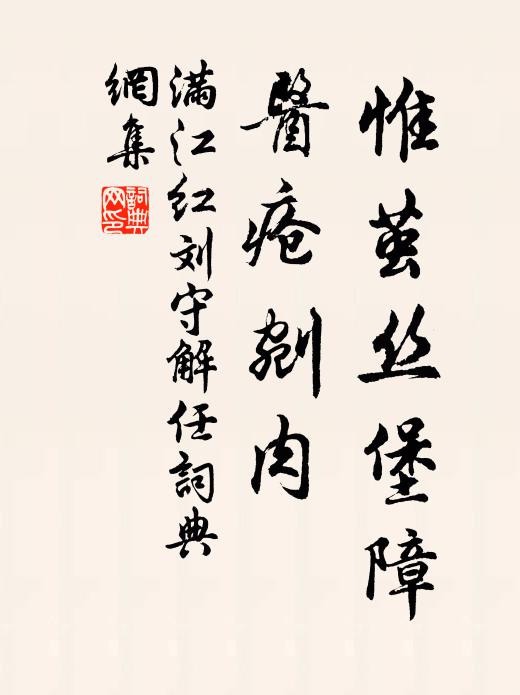 惟茧丝堡障
醫疮剜肉
满江红刘守解任詞典
網集
詞典网印